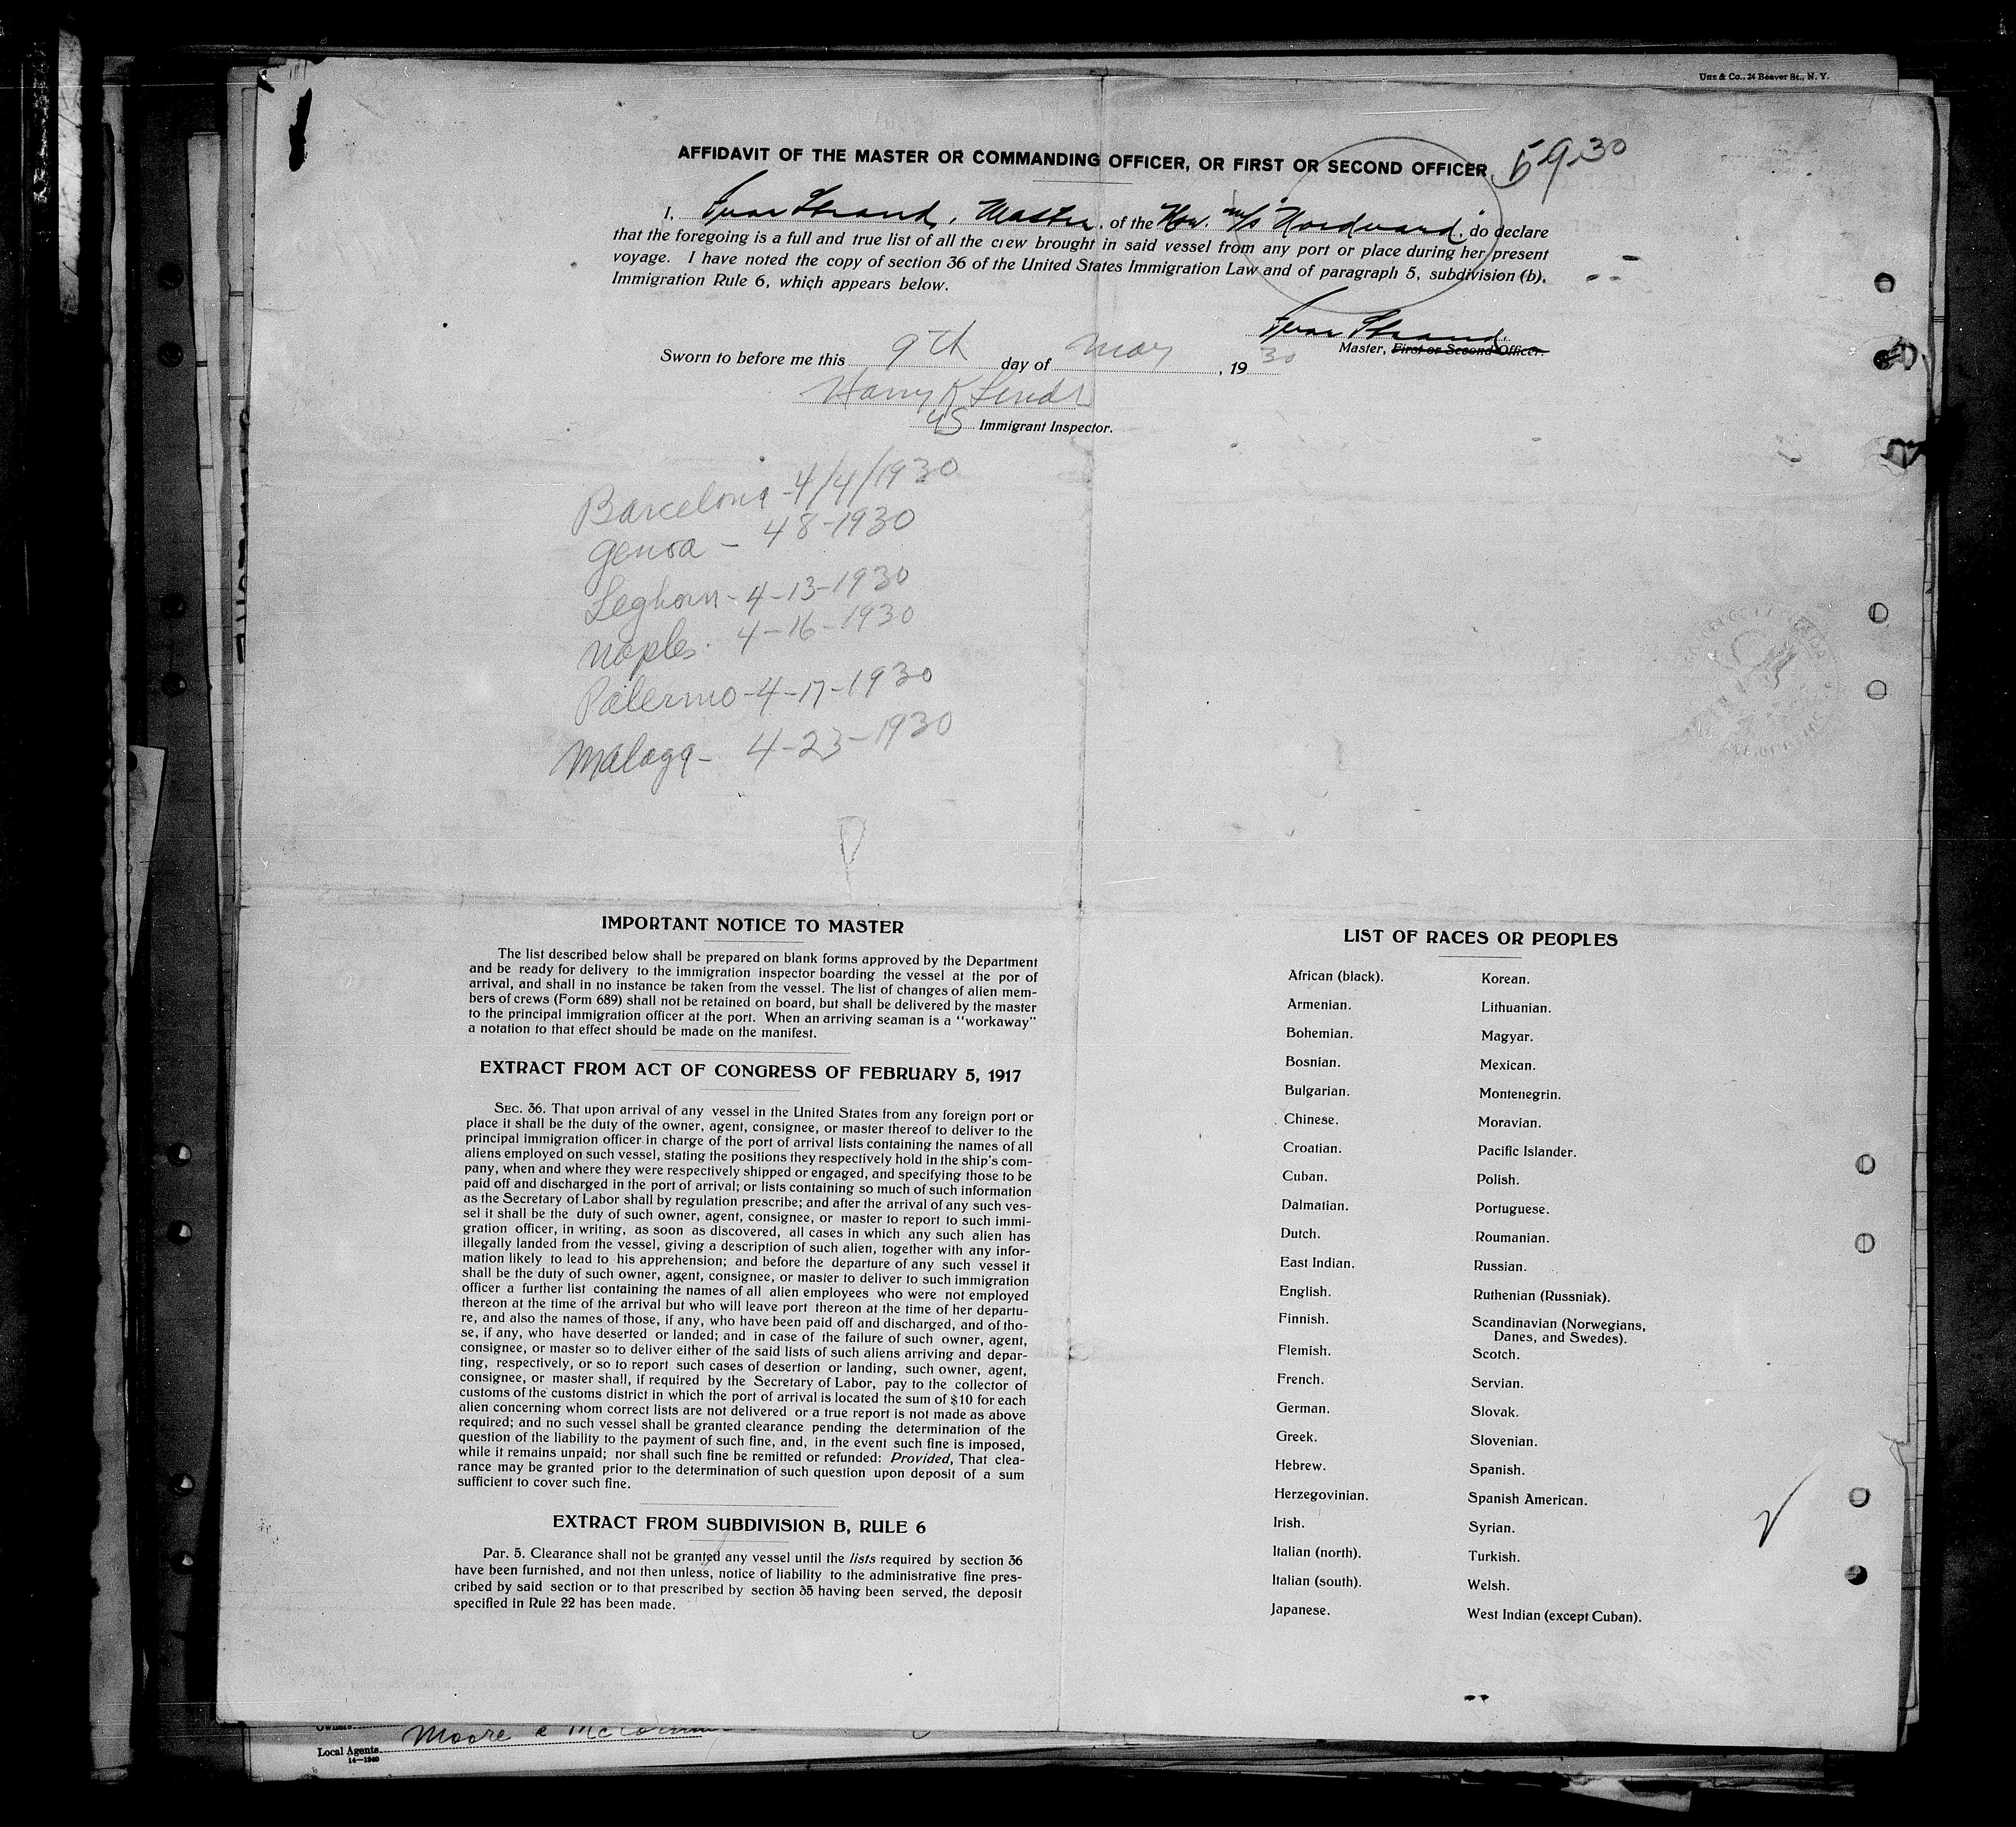 Unz & Co., 24 Beaver St., N. Y.
AFFIDAVIT OF THE MASTER OR COMMANDING OFFICER, OR FIRST OR SECOND OFFICER
5 9 30
I, Strand, Master, of the Now. m/s Nordvard, do declare
that the foregoing is a full and true list of all the crew brought in said vessel from any port or place during her present
voyage. I have noted the copy of section 36 of the United States Immigration Law and of paragraph 5, subdivision (b),
Immigration Rule 6, which appears below.
Strand.
Master, First or Second Officer.
Sworn to before me this 9th day of May, 1930
Harry K
US Immigrant Inspector.
Barcelona - 4/4/1930
Genoa - 4 8-1930
Leghorn - 4-13-1930
Naples. 4-16-1930
Palermo - 4-17-1930
Malaga - 4-23-1930
IMPORTANT NOTICE TO MASTER
The list described below shall be prepared on blank forms approved by the Department
and be ready for delivery to the immigration inspector boarding the vessel at the por of
arrival, and shall in no instance be taken from the vessel. The list of changes of alien mem-
bers of crews (Form 689) shall not be retained on board, but shall be delivered by the master
to the principal immigration officer at the port. When an arriving seaman is a "workaway"
a notation to that effect should be made on the manifest.
EXTRACT FROM ACT OF CONGRESS OF FEBRUARY 5, 1917
SEC. 36. That upon arrival of any vessel in the United States from any foreign port or
place it shall be the duty of the owner, agent, consignee, or master thereof to deliver to the
principal immigration officer in charge of the port of arrival lists containing the names of all
aliens employed on such vessel, stating the positions they respectively hold in the ship's com-
pany, when and where they were respectively shipped or engaged, and specifying those to be
paid off and discharged in the port of arrival; or lists containing so much of such information
as the Secretary of Labor shall by regulation prescribe; and after the arrival of any such ves-
sel it shall be the duty of such owner, agent, consignee, or master to report to such immi-
gration officer, in writing, as soon as discovered, all cases in which any such alien has
illegally landed from the vessel, giving a description of such alien, together with any infor-
mation likely to lead to his apprehension; and before the departure of any such vessel it
shall be the duty of such owner, agent, consignee, or master to deliver to such immigration
officer a further list containing the names of all alien employees who were not employed
thereon at the time of the arrival but who will leave port thereon at the time of her departu-
re, and also the names of those, if any, who have been paid off and discharged, and of tho-
se, if any, who have deserted or landed; and in case of the failure of such owner, agent,
consignee, or master so to deliver either of the said lists of such aliens arriving and depar-
ting, respectively, or so to report such cases of desertion or landing, such owner, agent,
consignee, or master shall, if required by the Secretary of Labor, pay to the collector of
customs of the customs district in which the port of arrival is located the sum of $10 for each
alien concerning whom correct lists are not delivered or a true report is not made as above
required; and no such vessel shall be granted clearance pending the determination of the
question of the liability to the payment of such fine, and, in the event such fine is imposed,
while it remains unpaid; nor shall such fine be remitted or refunded: Provided, That clea-
rance may be granted prior to the determination of such question upon deposit of a sum
sufficient to cover such fine.
EXTRACT FROM SUBDIVISION B, RULE 6
Par. 5. Clearance shall not be granted any vessel until the lists required by section 36
have been furnished, and not then unless, notice of liability to the administrative fine pres-
cribed by said section or to that prescribed by section 35 having been served, the deposit
specified in Rule 22 has been made.
LIST OF RACES OR PEOPLES
African (black).
Armenian.
Bohemian.
Bosnian.
Bulgarian.
Chinese.
Croatian.
Cuban.
Dalmatian.
Dutch.
East Indian.
English.
Finnish.
Flemish.
French.
German.
Greek.
Hebrew.
Herzegovinian.
Irish.
Italian (north).
Italian (south).
Japanese.
Korean.
Lithuanian.
Magyar.
Mexican.
Montenegrin.
Moravian.
Pacific Islander.
Polish.
Portuguese.
Roumanian.
Russian.
Ruthenian (Russniak).
Scandinavian (Norwegians,
Danes, and Swedes).
Scotch.
Servian.
Slovak.
Slovenian.
Spanish.
Spanish American.
Syrian.
Turkish.
Welsh.
West Indian (except Cuban).
Owners
Local Agents Moore &
14—1240